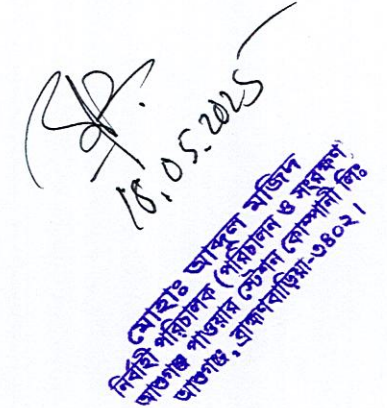 18.05.2025
মোহাঃ আব্দুল মজিদ
নির্বাহী পরিচালক (পরিচালন ও সংরক্ষণ)
আশুগঞ্জ পাওয়ার স্টেশন কোম্পানী লিঃ
আশুগঞ্জ, ব্রাহ্মণবাড়িয়া-৩৪০২।